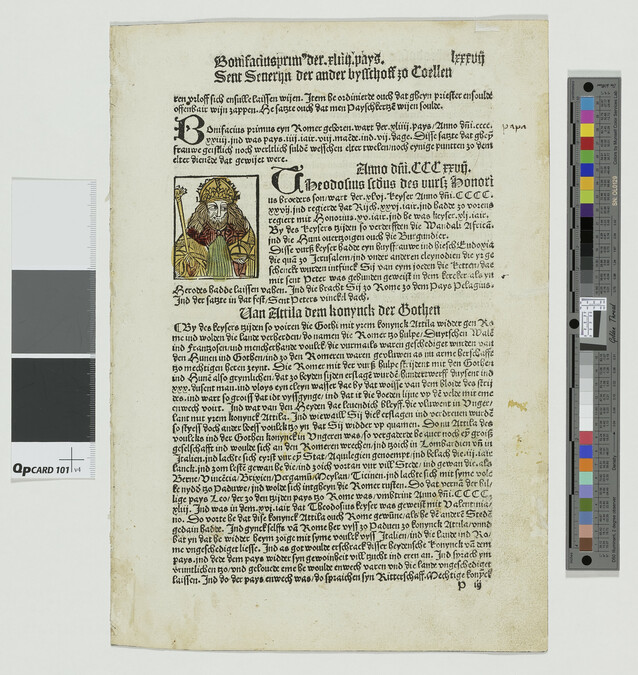 Bonifacius prim⁹ der .xliiij. pays. lxxxvij
Sent Seueryn der ander bysschoff zo Coellen
ren vrloff sich ensulle laissen wijen. Item he ordinierde ouch dat gheyn priester ensoulde
offenbair wijn zappen. He satzte ouch dat men Payschkertzē wijen soulde.
Bonifacius primus eyn Romer geboren. wart der .xliiij. pays / Anno dñi. cccc.
xxiij. ind was pays .iij. iair .viij. maēde. ind .vij. dage. Disse satzte dat gheyn
frauwe geistlich noch werltlich sulde wesschen elter twelen / noch eynige puntten zo dem
elter dienēde dat gewijet were.
papa
Anno dñi. CCCC xxvij.
Theodosius scđus des vurß Honori
us broeders son / wart der .xlvj. keyser Anno dñi. CCCC.
xxvij. ind regierde dat Rijch .xxvj. iair. ind hadde zo vorens
regiert mit Honorius .xv. iair. ind he was keyser .xlj. iair.
By des keysers tzijden so verderfften die Wandali Africā.
ind die Huni ouertzogen ouch die Burgundier.
Disse vurß keyser hadde eyn huyßfrauwe ind hiesch Eudoxia
die quā zo Jerusalem / ind vnder anderen cleynodien die yr ge
schenckt wurden intfinck Sij van eym joeden die ketten / dae
mit sent Peter was gebunden geweist in dem kercker als yn
Herodes hadde laissen vahen. Ind die bracht Sij zo Rome dem Pays Pelagius.
Ind der satzte in dat fest / Sent Peters vinckel dach.
Uan Attila dem konynck der Gothen
By des keysers tzijden so voiren die Gothi mit yrem konynck Attila widder gen Ro
me ind wolden die lande verherden / do namen die Romer tzo hulpe / Duytschen Walē
ind Frantzosen / ind mencherhande vouick / die vurmails waren geschediget wurden van
den Hunen ind Gothen / ind zo den Romeren waren gevluwen as an arme herschafft
tzo mechtigen heren zeynt. Die Romer mit der vurß hulpe strijdent mit den Gothen
ind Hunē also grymlichen / dat zo beyden sijden erslagē wurdē hundertwerff duysent ind
xxx. dusent man / ind vloys eyn cleyn wasser dae by dat woisse van dem bloide des strij
des / ind wart so groiss dat idt vyssgynge / ind dat it die doeden lijue vp dē velde mit eme
enwech vort. Ind wat van den Heyden dae leuendich bleyff / die vluwent in Unger/
lant mit yrem konynck Attila. Ind wiewaill Sij dick erslagen ind verdreuen wurdē
so styess doch ander boess vouick tzo yn dat Sij widder vp quamen. Do in Attila des
vouickes ind der Gothen konynck in Ungeren was / so vergaderde he auer noch eyn groiß
geselschafft ind woulde sich an den Romeren wrechen / ind tzoich in Lombardien vñ in
Italien / ind lachte sich eyrst vur eyn Stat Aquilegien genoempt / ind belach die .iij. iair
lanck. ind zom lestē gewan he die / ind zoich vortan vur vill Stede / ind gewan die / als
Berne / Uincēcia / Brixien / Pergamū / Meylan / Ticinen. ind lachte sich mit syme volc
ke nyddē tzo Paduwe / ind wolde sich intgheyn die Romer rusten. Do dat vernā der hil
lige pays Leo / der zo den tzijden pays tzo Rome was / vmbtrint Anno dñi. CCCC.
xliij. Ind was in dem .xvj. iair. dat Theodosius keyser was geweist mit Ualentinia/
no. Do vorte he dat dise konynck Attila ouch Rome gewūne / als he dē anderē Stedē
gedain hadde. Ind gynck selffs vā Rome her vyss zo Paduen zo konynck Attila / vnnd
bat yn dat he widder heym zoige mit syme voulck vyss Italien / ind die lande ind Ro/
me vngeschediget liesse. Ind as got woulde erschrack disser heydensche konynck van dem
pays. ind dede dem pays widder syn gewoinheit vill tzucht ind eren an. Ind sprach yn
vrüntlichen tzo / vnd geloufde eme he woulde enwech varen vnd die lande vngeschediget
laissen. Ind do der pays enwech was / do spraichen syn Ritterschaff. Mechtige konyck
P iij
QPCARD 101 v4